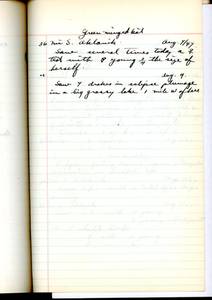 Green-winged teal
Mi S. Aug 7/47
Saw several times today a ♀
teal with 8 young ½ the size of
herself
Aug. 9.
Saw 7 drakes in eclipse plumage
in a big grassy lake 1 mile W of